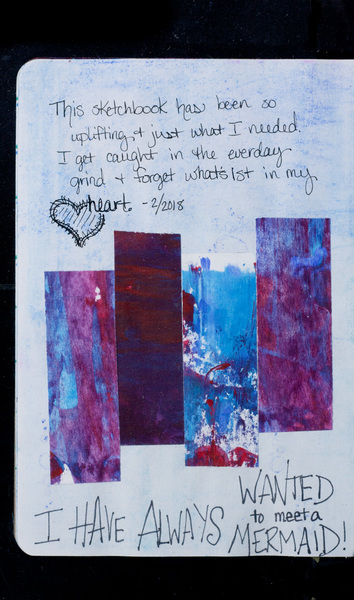 This sketchbook has been so
uplifting & just what I needed.
I get caught in the everday
grind & forget what's 1st in my
heart. -2/2018
I HAVE ALWAYS WANTED
to meet a
MERMAID!